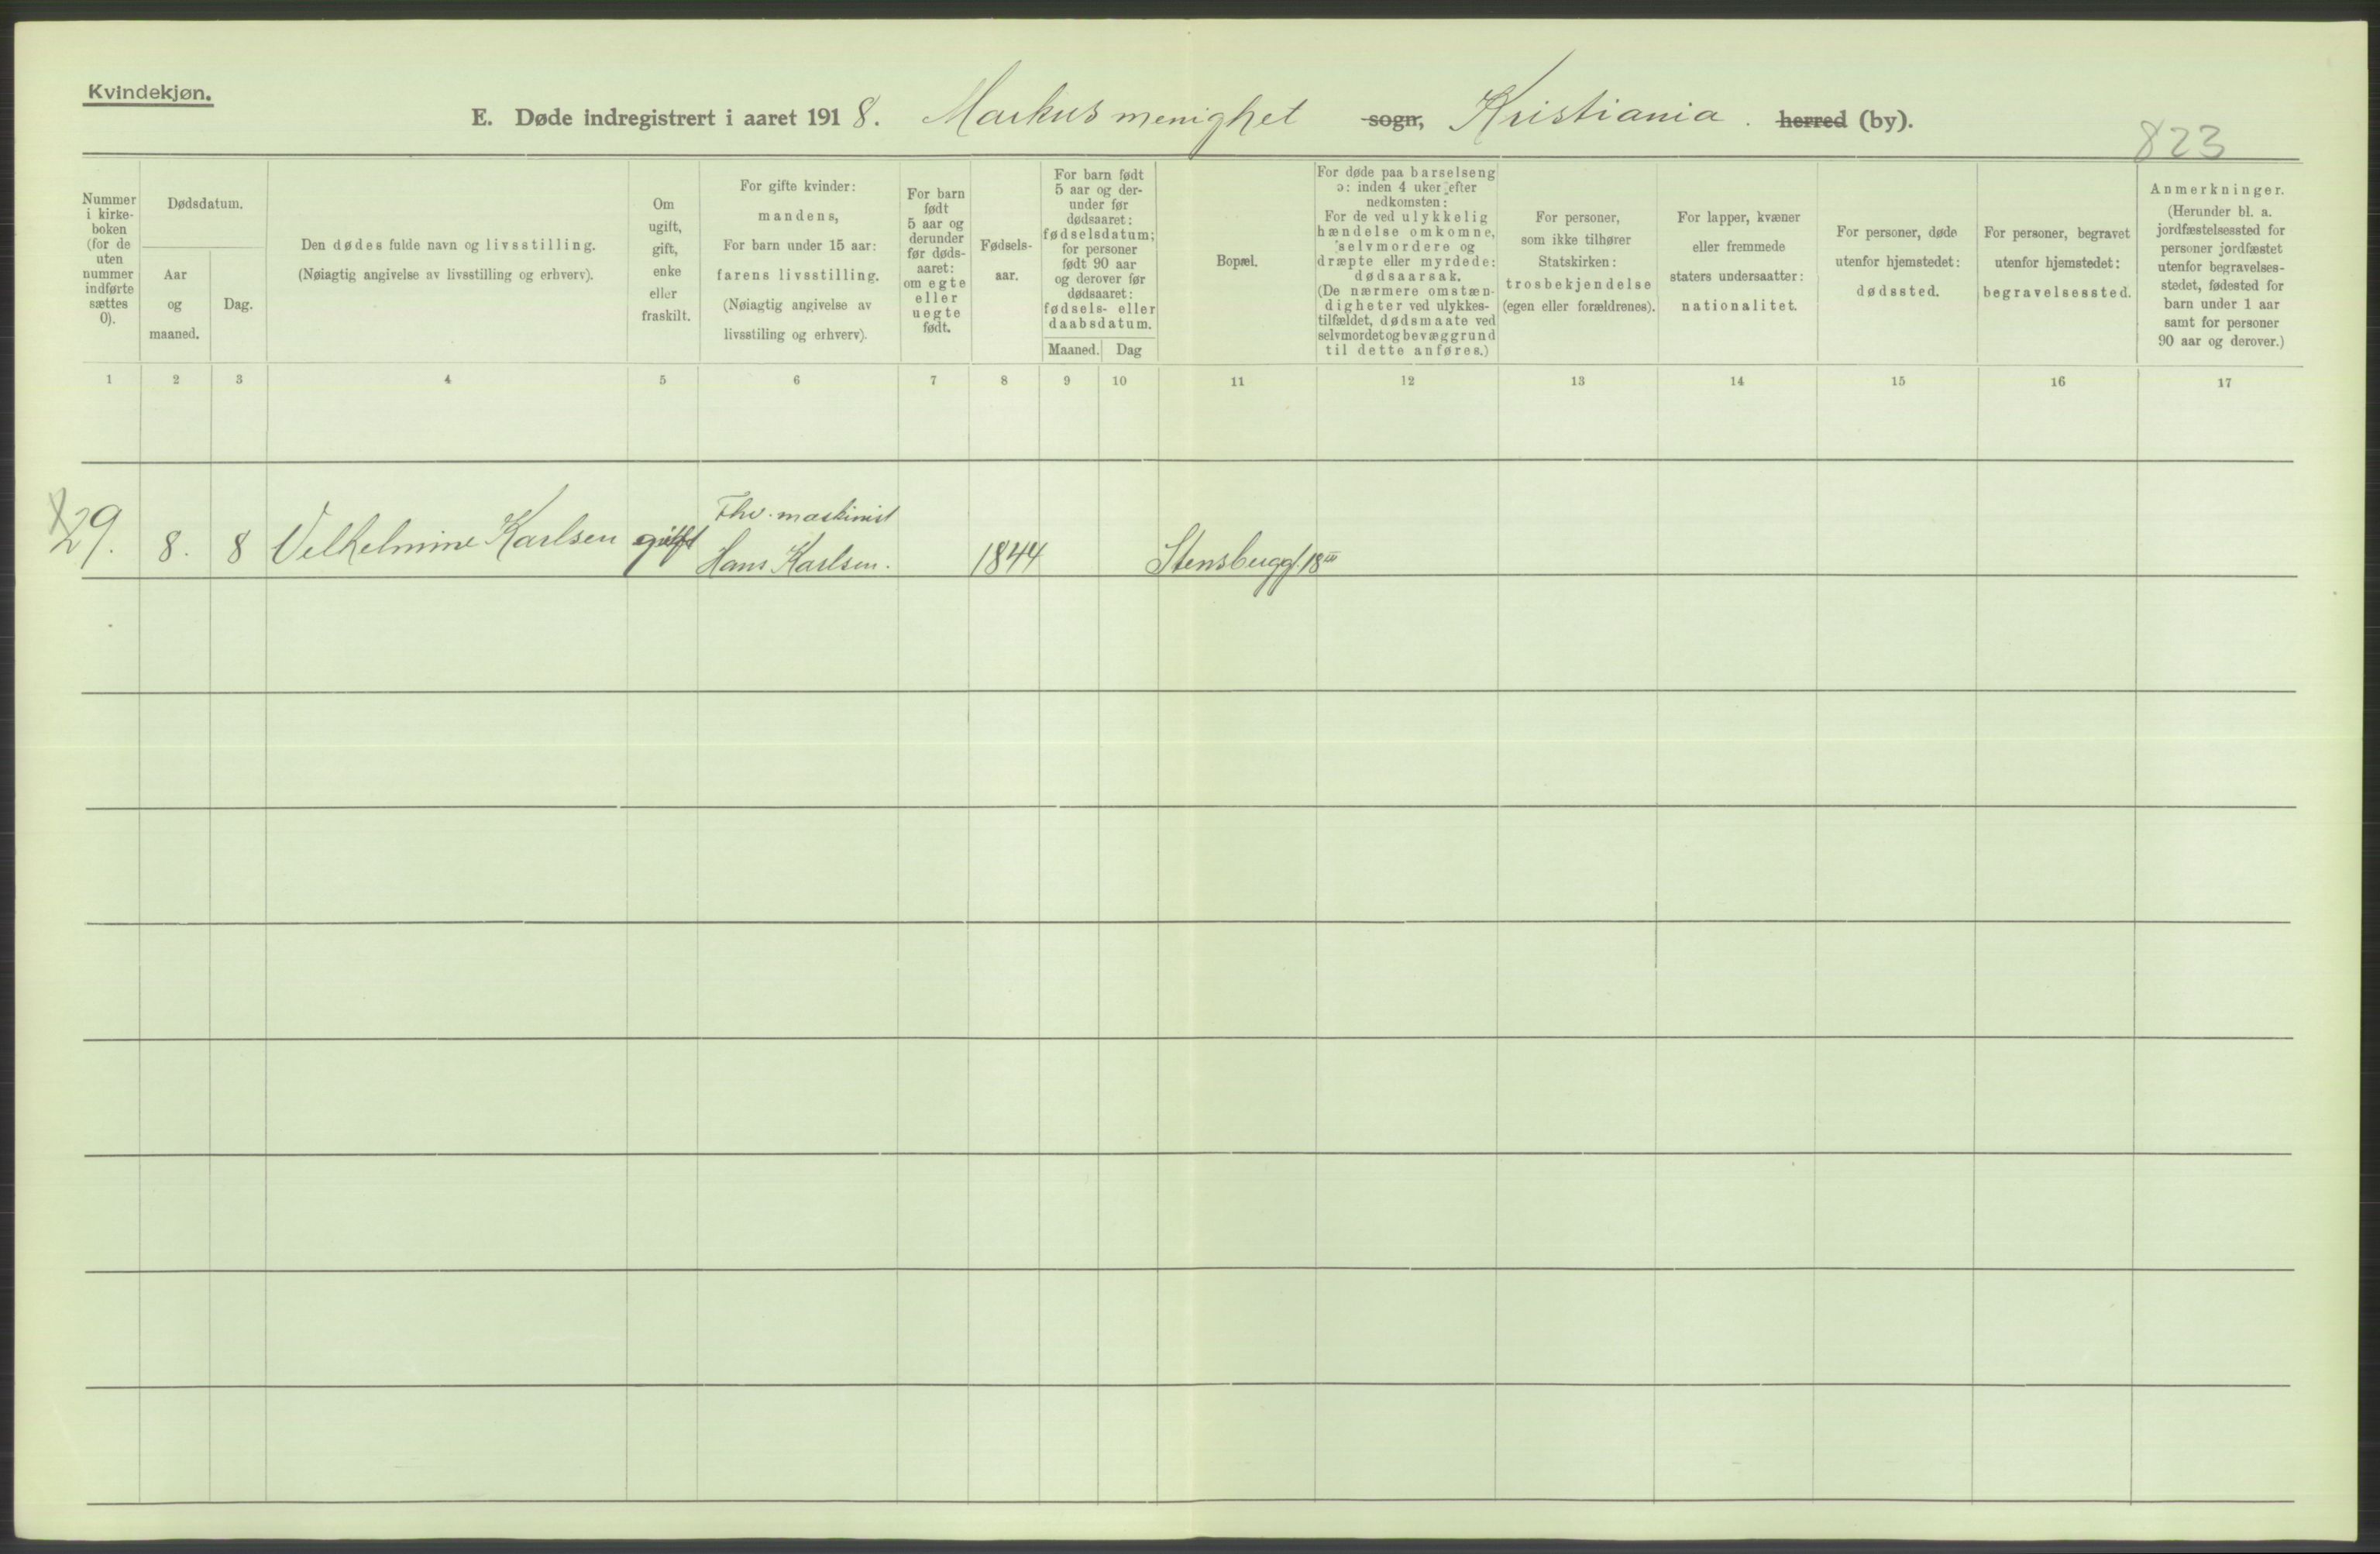 Kvindekjøn.
E. Døde indregistrert i aaret 1918. Markus menighet sogn, Kristiania. herred (by).
823
Nummer
i kirke-
boken
(for de
uten
nummer
indførte
sættes
0).
Dødsdatum.
Aar
og
maaned.
Dag.
Den dødes fulde navn og livsstilling.
(Nøiagtig angivelse av livsstilling og erhverv).
Om
ugift,
gift,
enke
eller
fraskilt.
For gifte kvinder:
mandens,
For barn under 15 aar:
farens livsstilling.
(Nøiagtig angivelse av
livsstiling og erhverv).
For barn
født
5 aar og
derunder
før døds-
aaret:
om egte
eller
uegte
født.
Fødsels-
aar.
For barn født
5 aar og der-
under før
dødsaaret:
fødselsdatum;
for personer
født 90 aar
og derover før
dødsaaret:
fødsels- eller
daabsdatum.
Maaned. Dag
Bopæl.
For døde paa barselseng
ɔ: inden 4 uker efter
nedkomsten:
For de ved ulykkelig
hændelse omkomne,
selvmordere og
dræpte eller myrdede:
dødsaarsak.
(De nærmere omstæn-
digheter ved ulykkes-
tilfældet, dødsmaate ved
selvmordet og bevæggrund
til dette anføres.)
For personer,
som ikke tilhører
Statskirken:
trosbekjendelse
(egen eller forældrenes).
For lapper, kvæner
eller fremmede
staters undersaatter:
nationalitet.
For personer, døde
utenfor hjemstedet:
dødssted.
For personer, begravet
utenfor hjemstedet:
begravelsessted.
Anmerkninger.
(Herunder bl. a.
jordfæstelsessted for
personer jordfæstet
utenfor begravelses-
stedet, fødested for
barn under 1 aar
samt for personer
90 aar og derover.)
1 2 3 4 5 6 7 8 9 10 11 12 13 14 15 16 17
29. 8. 8 Velhelmine Karlsen gift
Fhv. maskinist
Hans Karlsen.
1844 Stensberggt. 18 III